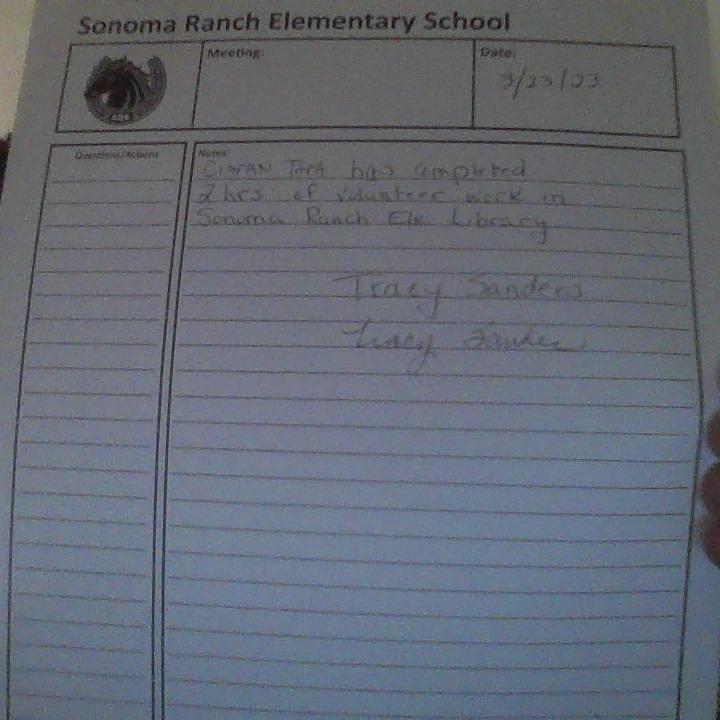 Sonoma Ranch Elementary School
Meeting:
Date:
3/23/23
Questions/Actions
Notes:
has completed
2 hrs of volunteer work in
Sonoma Ranch Ele Library.
Tracy Sanders
Tracy Sanders